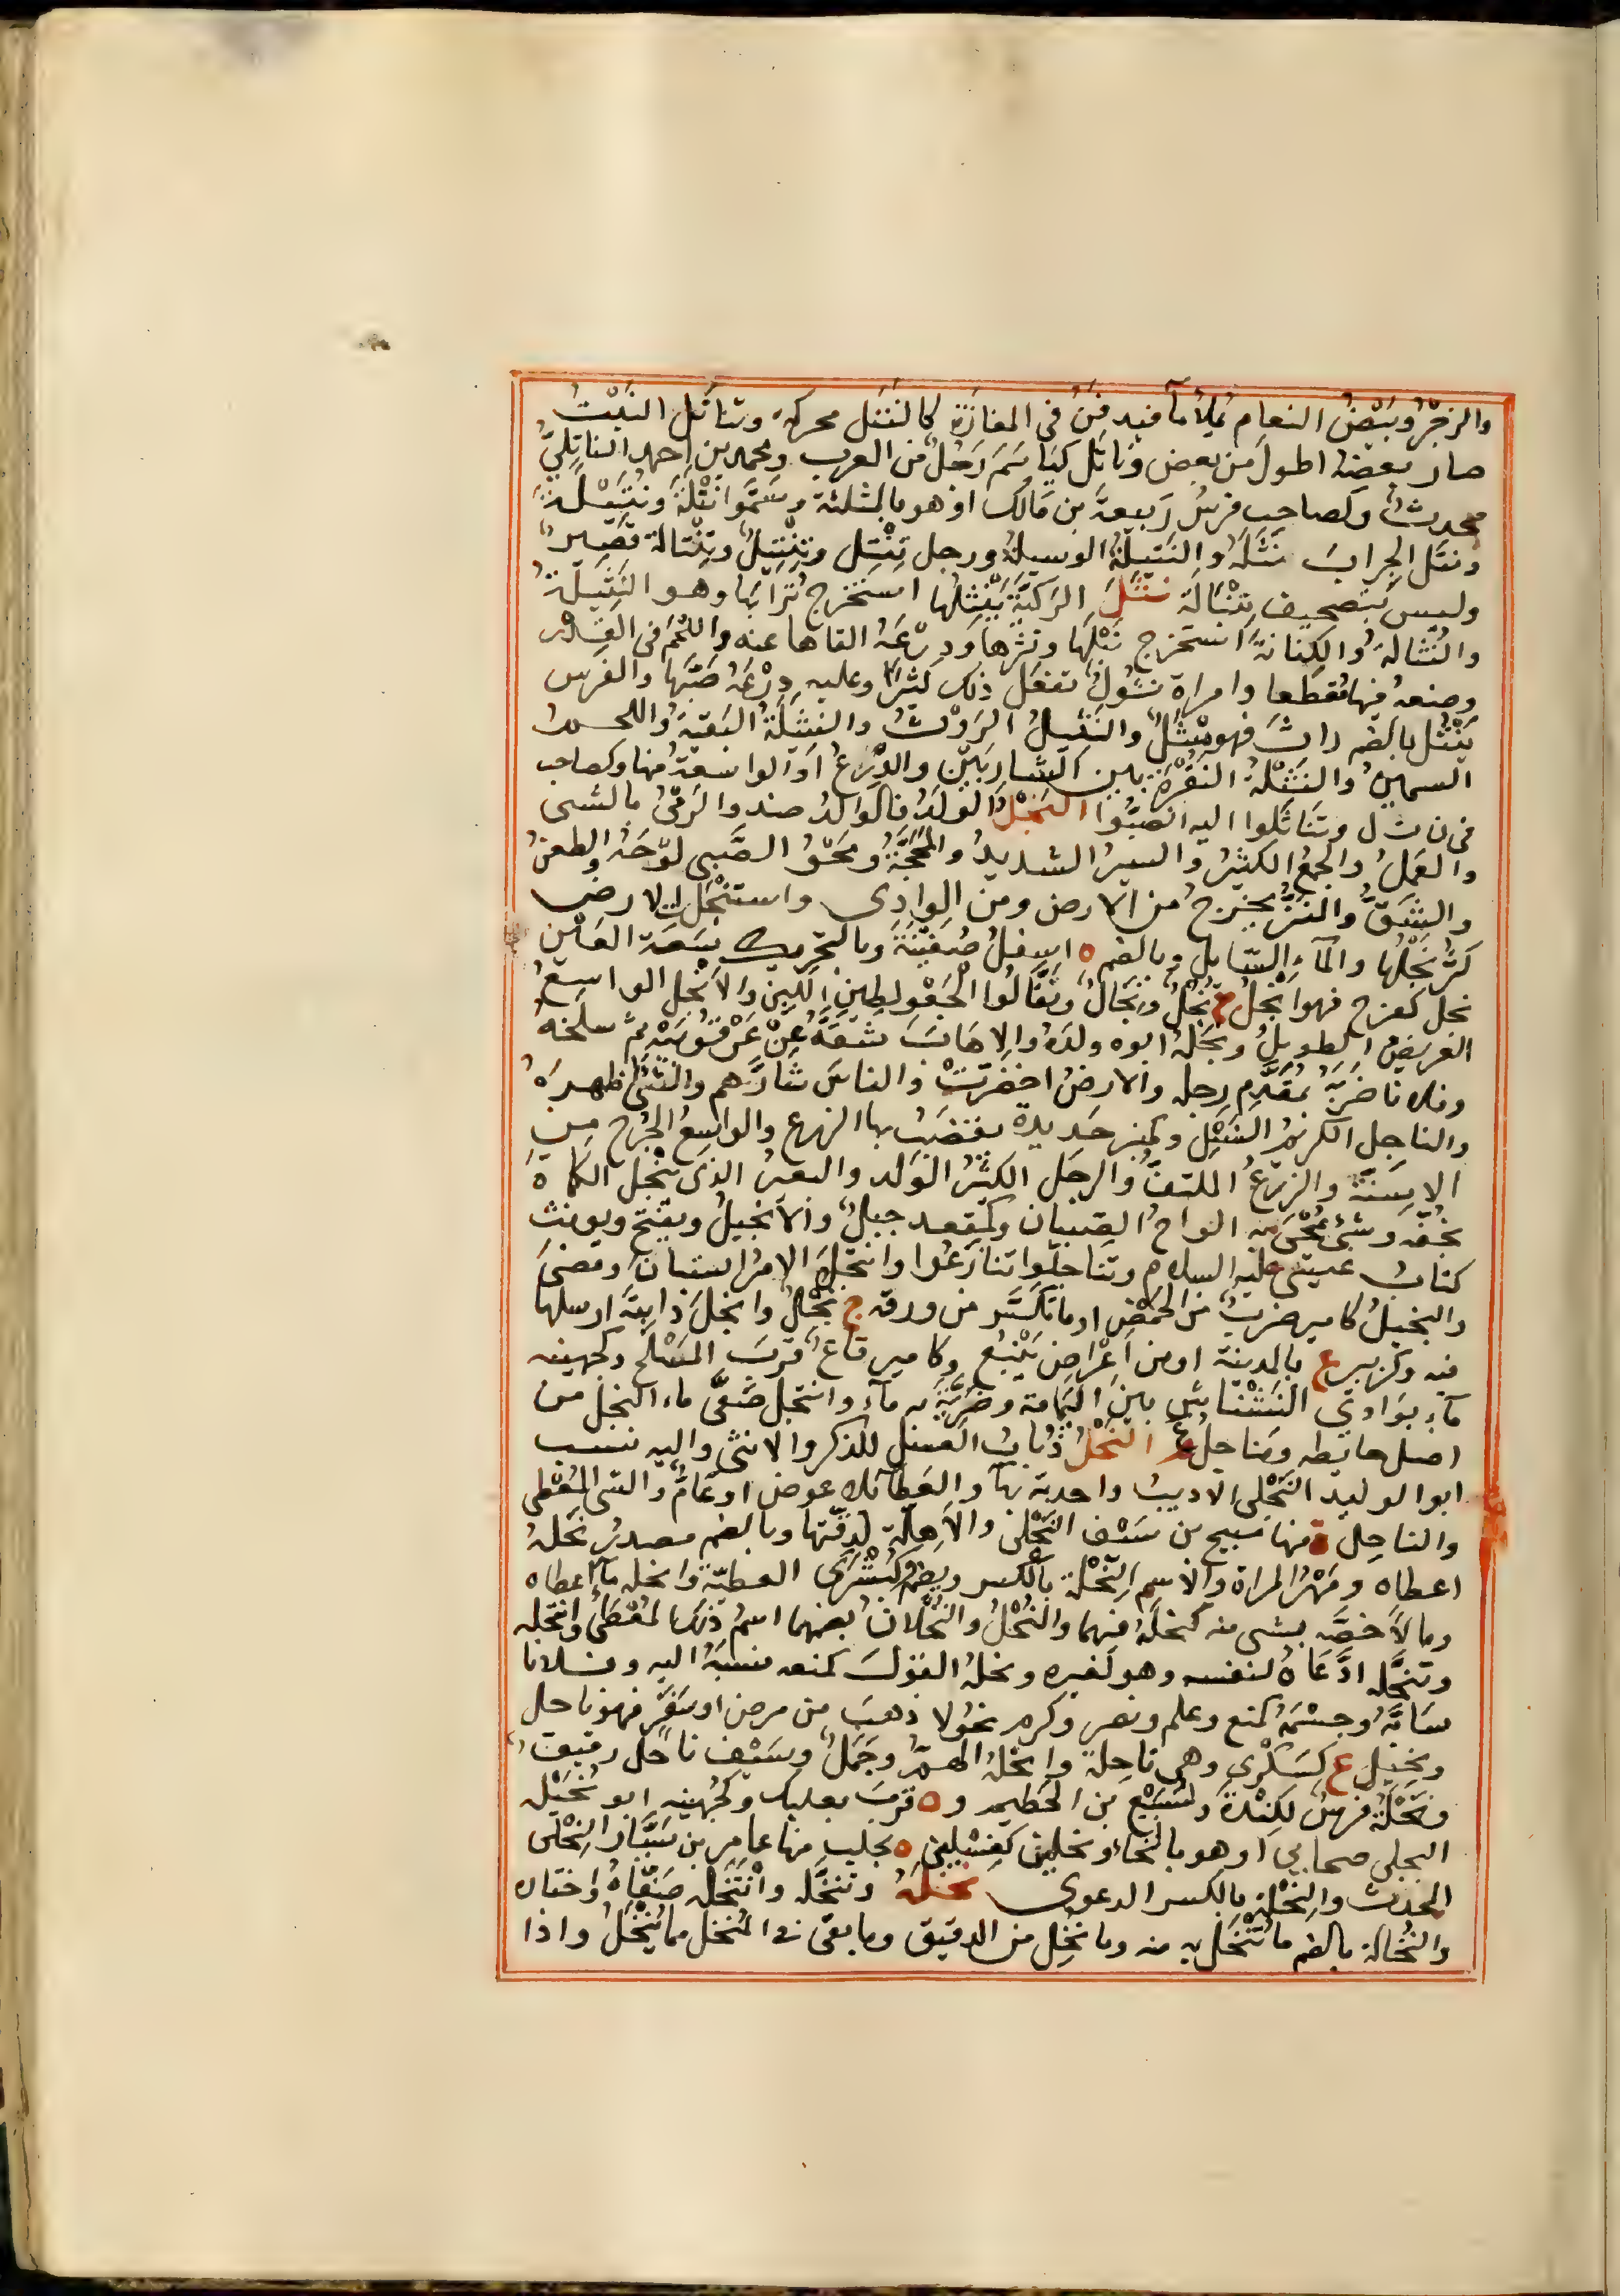 والزجرُ وبَيْضُ النعام يُملأ ماً فيدفنُ في المفازة كالنتل محركة وتناتل النبتُ
صار بعضهُ اطول من بعض وناتل كيا سم رجلٌ من العرب ومحمد بن احمد الناتليّ
محدثٌ وكصاحب فرسُ ربيعةَ بن مالك او هو بالمثلثة وسَمَّوا نَتْلَة ونُتَيْلَة
ونتل الجراب نَثَلَهُ والنَتيلةُ الوسيلةُ ورجل تِنْتِل وتِنْتِيلٌ وتِنْتالة قصير
وليس بتصحيف تِنْبَالَة نَثَلَ الركيّةَ يَنْثِلُها استخرج تُرابَها وهو النَثيلَةُ
والنُثالةُ والكِنانةَ استخرج نَبْلَها ونثرها ودِرْعَهُ القاها عنه واللحمَ في القِدْر
وضعهُ فيها مُقطّعا وامراة نَثُولٌ تفعل ذلك كثيرا وعليه دِرْعَهُ صَبَّها والفرس
يَنْثُل بالضم راثَ فهو مِنْثَلٌ والنَثيلُ الرَوْثُ والنثيلةُ البَقيةُ واللحمُ
السمينُ والنَثْلة النُقْرةُ بين الشاربَيْن والدِّرْعُ او الواسعةُ منها وكصاحب
في ن ت ل وتَناثَلوا اليه انصبُّوا النَجْلُ الولدُ والوالدُ ضد والرَمْيُ بالشي
والعملُ والجمعُ الكثيرُ والسيرُ الشديدُ والمحجّةُ ومَحْوُ الصَّبِي لوحَهُ والطعنُ
والشَقُّ والنَزُّ يخرجُ من الارض ومن الوادي واستنْجلت الارض
كَثُر نَجْلُها والمآء السّايل وبالضم ه اسفلُ صُفَيْنَةَ وبالتحريك سَعَة العَيْن
نجل كفرح فهو انجلُ ج نُجْلٌ ونِجَالٌ ونقّالُوا الجَعْو لطين اللَبِن والانجل الواسعُ
العريضُ الطويلُ ونَجَلَهُ ابوه ولدَهُ والاهابَ شقَّهُ عن عُرْقُوبَيْه ثم سلخهُ
وفلانا ضربَهُ بمُقَدَّم رِجله والارضُ اخضرّتْ والناسَ شارَّهم والشئ اظهرهُ
والناجل الكريمُ النَجْل وكمنبر حديدة يقضَبُ بها الزرع والواسِعُ الجُرح من
الاسِنَّة والزرعُ الملتفُّ والرجل الكثيرُ الولد والبعير الذي يَنْجل الكماة
بخُفّه وشئ يُمْحَى به الواح الصِبيان وكمقعد جبلٌ والانجيلُ ويفتح ويونث
كتابُ عيسى عليه السلام وتناجلوا تنازَعُوا وانتجلَ الامرُ استبانَ ومضى
والنجيلُ كامير ضربٌ من الحَمْض او ما تكسّر من ورقه ج نُجُلٌ وانجلَ دابتَهُ ارسلها
فيه وكزبير ع بالمدينة او من اعْراض يَنْبُع وكامير قاعٌ قربَ المَسْلَح وكجهينه
مآء بوادي النَشْناش بين اليَمامة وضَرِيَّة وانتجل صَفَّى ماء النجل من
اصل حايطه ومَناجِلُ ع النَحْلُ ذُبابُ العسل للذكر والانثى واليه نسب
ابو الوليد النَحْلي الاديبُ واحدته بهآ والعَطآ بلا عوض او عَامٌّ والشئ المُعْطى
والناحِل ة منها منيح بن سَيْف النَحْلي والاهِلّة لدِقّتها وبالضم مصدرُ نَحلهُ
اعطاه ومَهْرُ المراة والاسم النِحْلة بالكسر ويضم وكبُشْرَى العطيّةُ وانحلهُ مآء اعطاه
ومالاً خصّه بشي منه كنحلهُ فيهما والنُحْلُ والنُحْلانُ بضمهما اسمُ ذلك المُعْطَى وانتحله
وتنحَّله ادَّعاهُ لنفسه وهو لغيره ونحلهُ القولَ كمنعه نسبهُ اليه وفلانا
سابَّهُ وجسْمُهُ كمنع وعلم ونصر وكرم نحُولا ذهبَ من مرض او سَفَر فهو ناحل
ونحيل ع كسَكْرى وهي ناحِلة وانحلهُ الهمُّ وجَمَلٌ وسَيْف ناحلٌ رقيق
ونَحْلَةُ فرسُ لكِنْدةَ ولسُبَيْع بن الخطيم وه قربَ بعلبك وكجُهَينه ابو نُحَيْله
البجلي صحابي او هو بالخاء ونحلين كغِسْلين ه بحلب منها عامر بن سَيَّار النِحْلي
المحدث والنِحْلَة بالكسر الدعوى نخَلَهُ وتنخَّله وانْتَخَلهُ صفّاهُ واختاره
والنُخالة بالضم ما تَنْخَل به منه وما نُخِل من الدقيق وما بقي في المُنخل مما يُنْخَلُ واذا